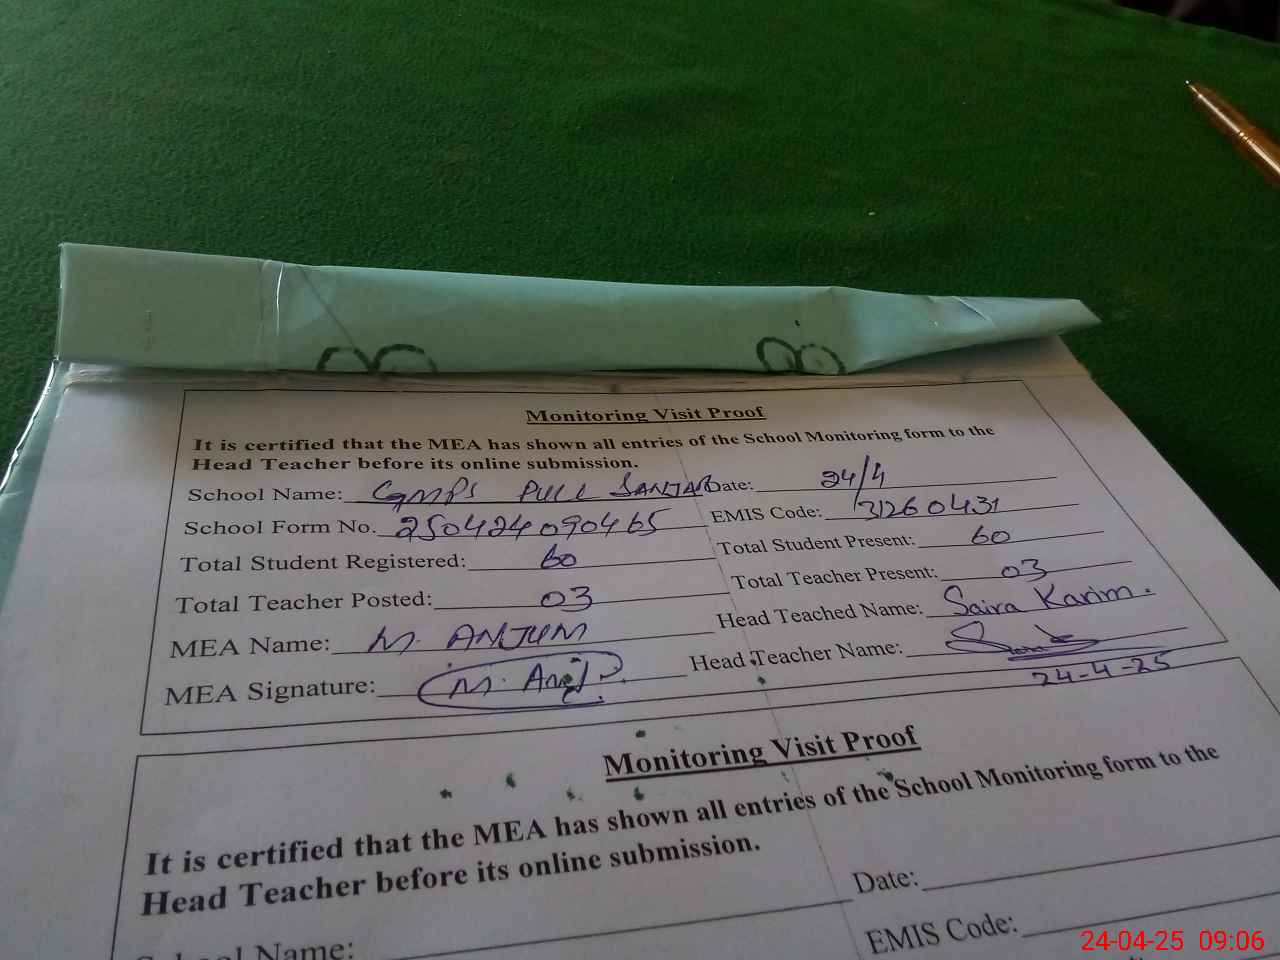 Monitoring Visit Proof
It is certified that the MEA has shown all entries of the School Monitoring form to the
Head Teacher before its online submission.
School Name: GMPS PULL SANJAR Date: 24/4
School Form No. 250424090465 EMIS Code: 31260431
Total Student Registered: 60 Total Student Present: 60
Total Teacher Posted: 03 Total Teacher Present: 03
MEA Name: M. ANJUM Head Teached Name: Saira Karim.
MEA Signature: M. Anj Head Teacher Name:
24-4-25
Monitoring Visit Proof
It is certified that the MEA has shown all entries of the School Monitoring form to the
Head Teacher before its online submission.
Date:
School Name:
EMIS Code:
24-04-25 09:06